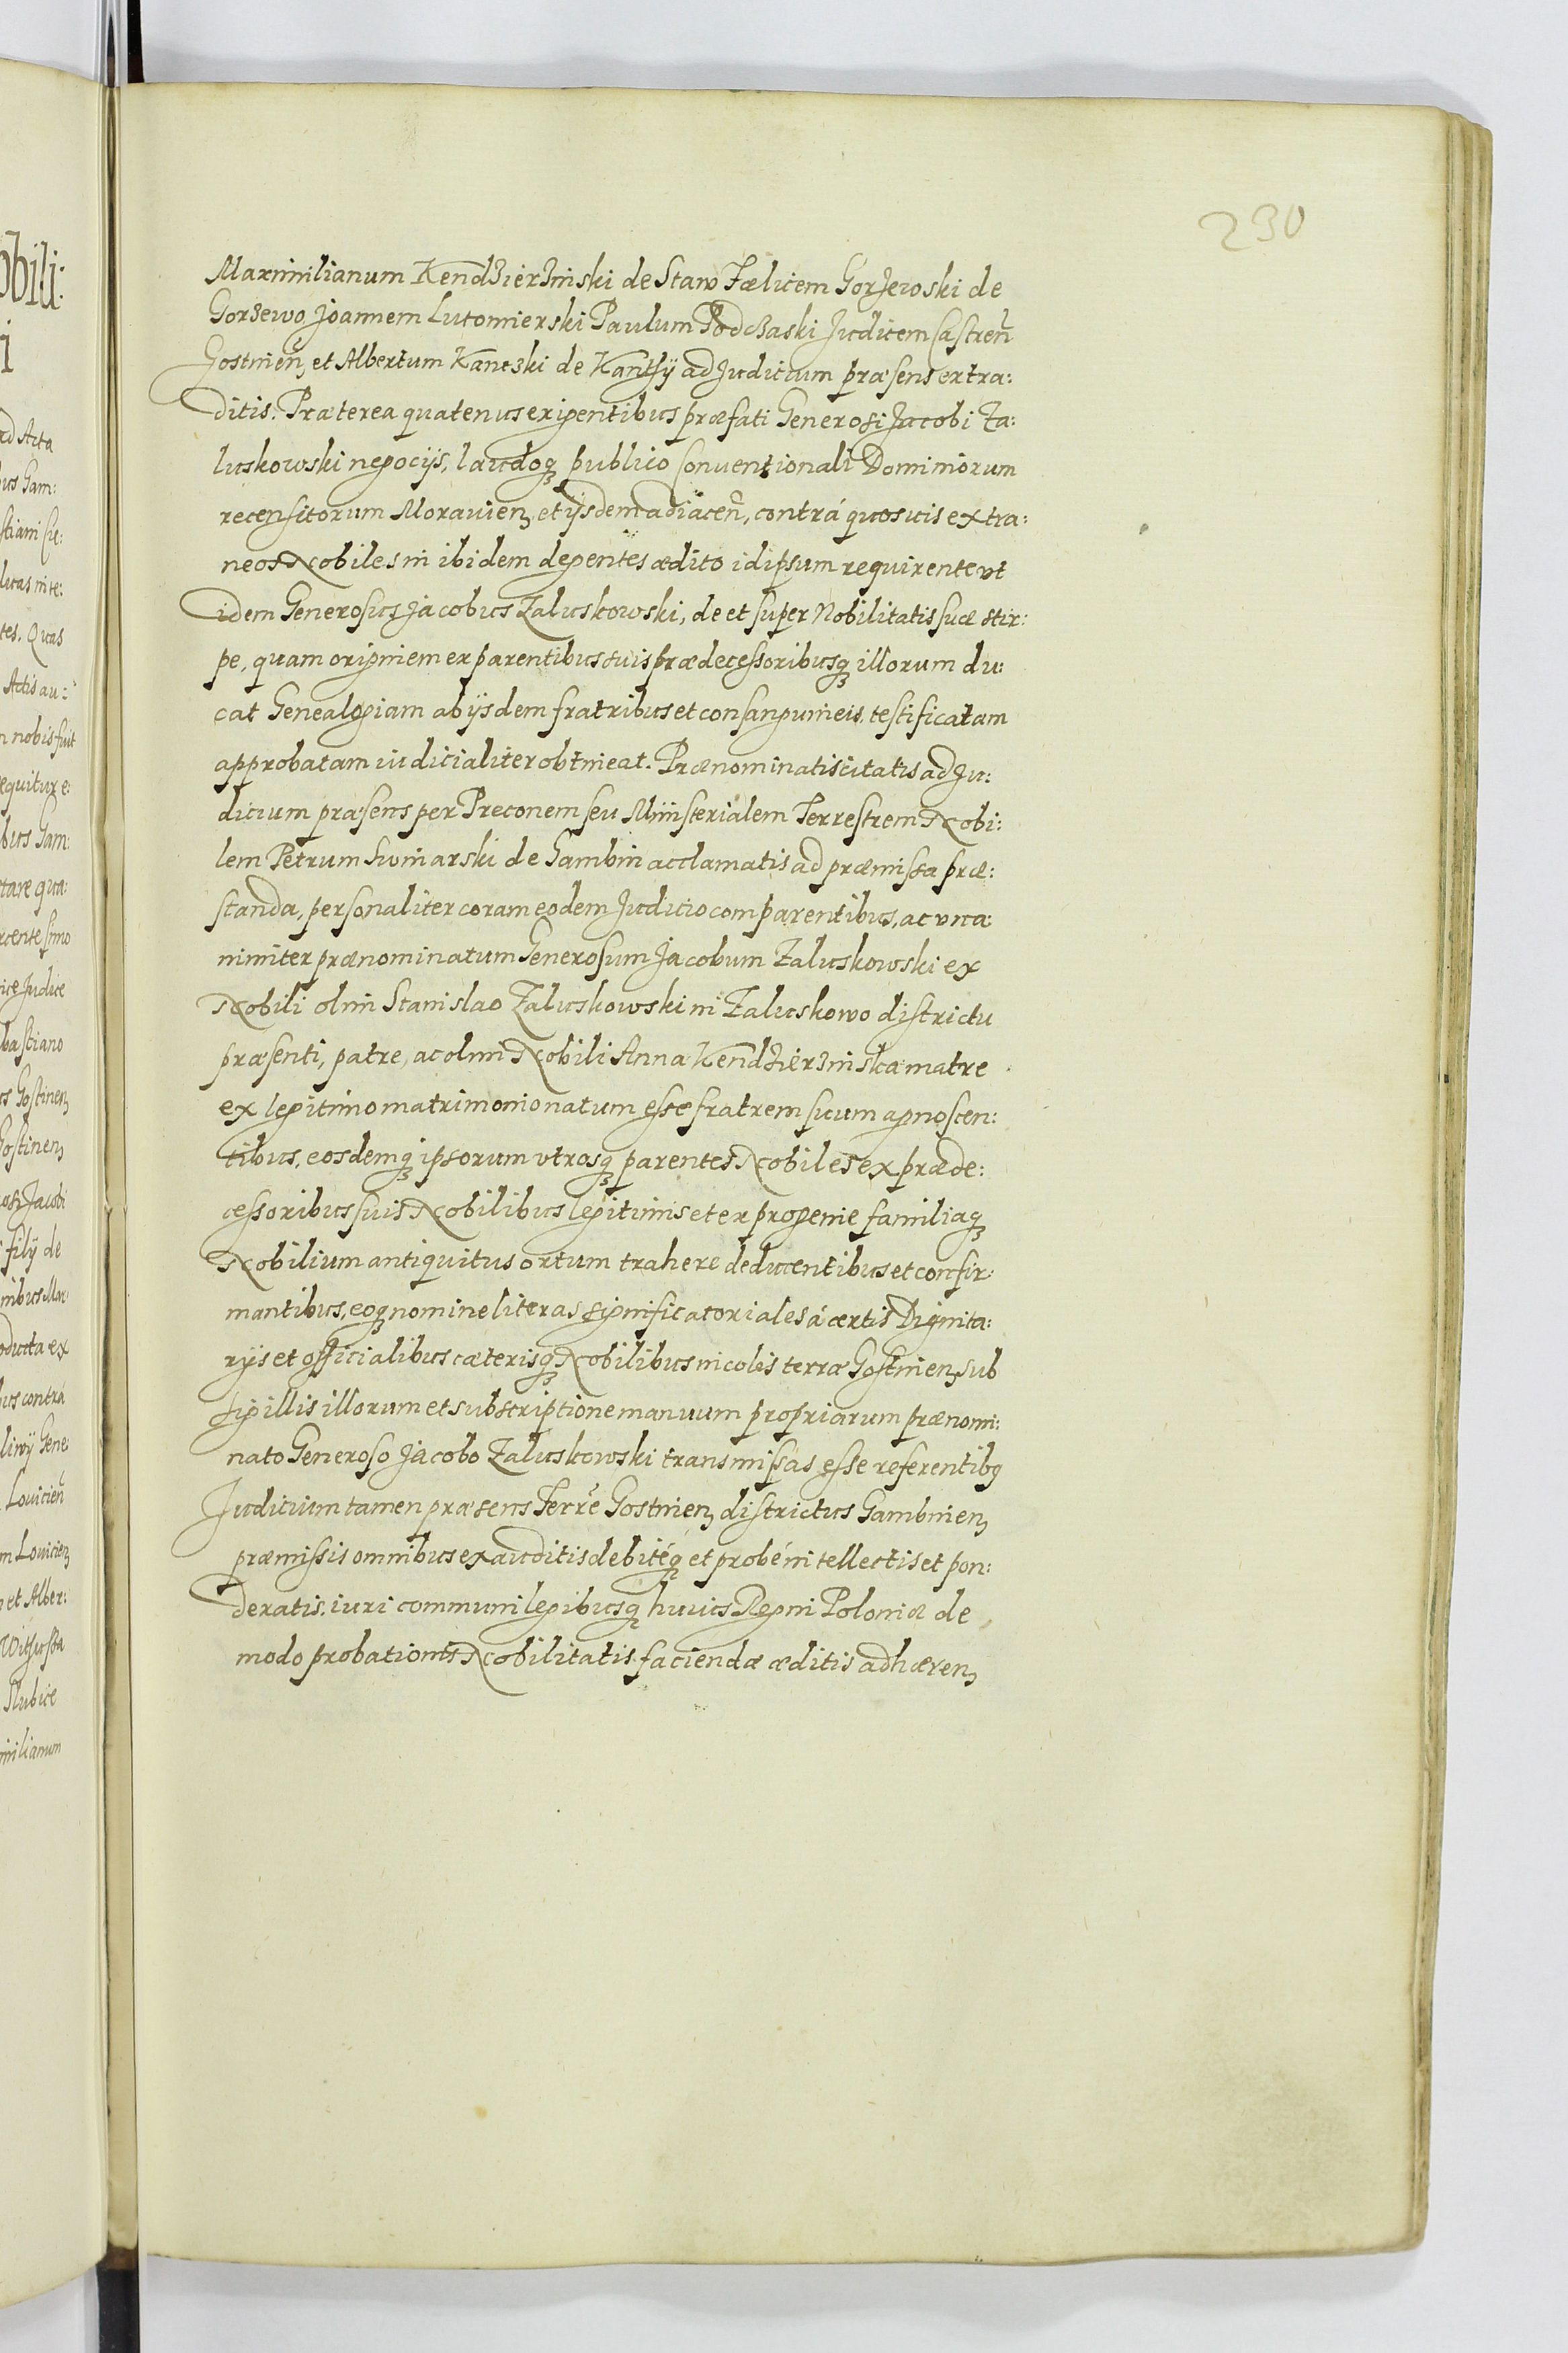 230
Maximilianum Kendzierzinski de Staw Fælicem Gorzewski de
Gorzewo, Joannem Lutomierski Paulum Podczaski Judicem Castren̄
Gostinen̄, et Albertum Kanczki de Kantzÿ ad Juditium præsens extra:
ditis. Præterea quatenus exigentibus præfati Generosi Jacobi Za:
luskowski negocijs, laudoq̃ publico Conventionali Dominiorum
recensitorum Moravien, et ijsdem adiacen̄, contrá quosuis extra:
neos Nobiles in ibidem degentes ædito idipsum requirente vt
idem Generosus Jacobus Zaluskowski, de et super Nobilitatis suæ stir:
pe, quam originem ex parentibus suis prædecessoribusq̃ illorum du:
cat Genealogiam ab ijsdem fratribus et consanguineis testificatam
approbatam iudicialiter obtineat. Prænominatis citatis ad Ju:
dicium præsens per Preconem seu Ministerialem Terrestrem Nobi:
lem Petrum Swinarski de Gambin acclamatis ad præmissa præ:
standa, personaliter coram eodem Juditio comparentibus, ac vna:
nimiter prænominatum Generosum Jacobum Zaluskowski ex
Nobili olim Stanislao Zaluskowski in Zaluskowo districtu
præsenti, patre, ac olim Nobili Anna Kendzierzinska matre
ex legitimo matrimonio natum esse fratrem suum agnoscen:
tibus, eosdemq̃ ipsorum vtrosq̃ parentes Nobiles ex præde:
cessoribus suis Nobilibus legitimis et ex progenie familiaq̃
Nobilium antiquitus ortum trahere deducentibus et confir:
mantibus, eoq̃ nomine literas significatoriales á certis Dignita:
rijs et officialibus cæterisq̃ Nobilibus incolis terræ Gostinen, sub
sigillis illorum et subscriptione manuum propriarum prænomi:
nato Generoso Jacobo Zaluskowski transmissas esse referentibq
Juditium tamen præsens Terre Gostinen, districtus Gambinen,
præmissis omnibus exauditis debitéq̃ et probé intellectis et pon:
deratis. iuri communi legibusq̃ huius Regni Poloniæ de
modo probationis Nobilitatis faciendæ æditis adhæren,